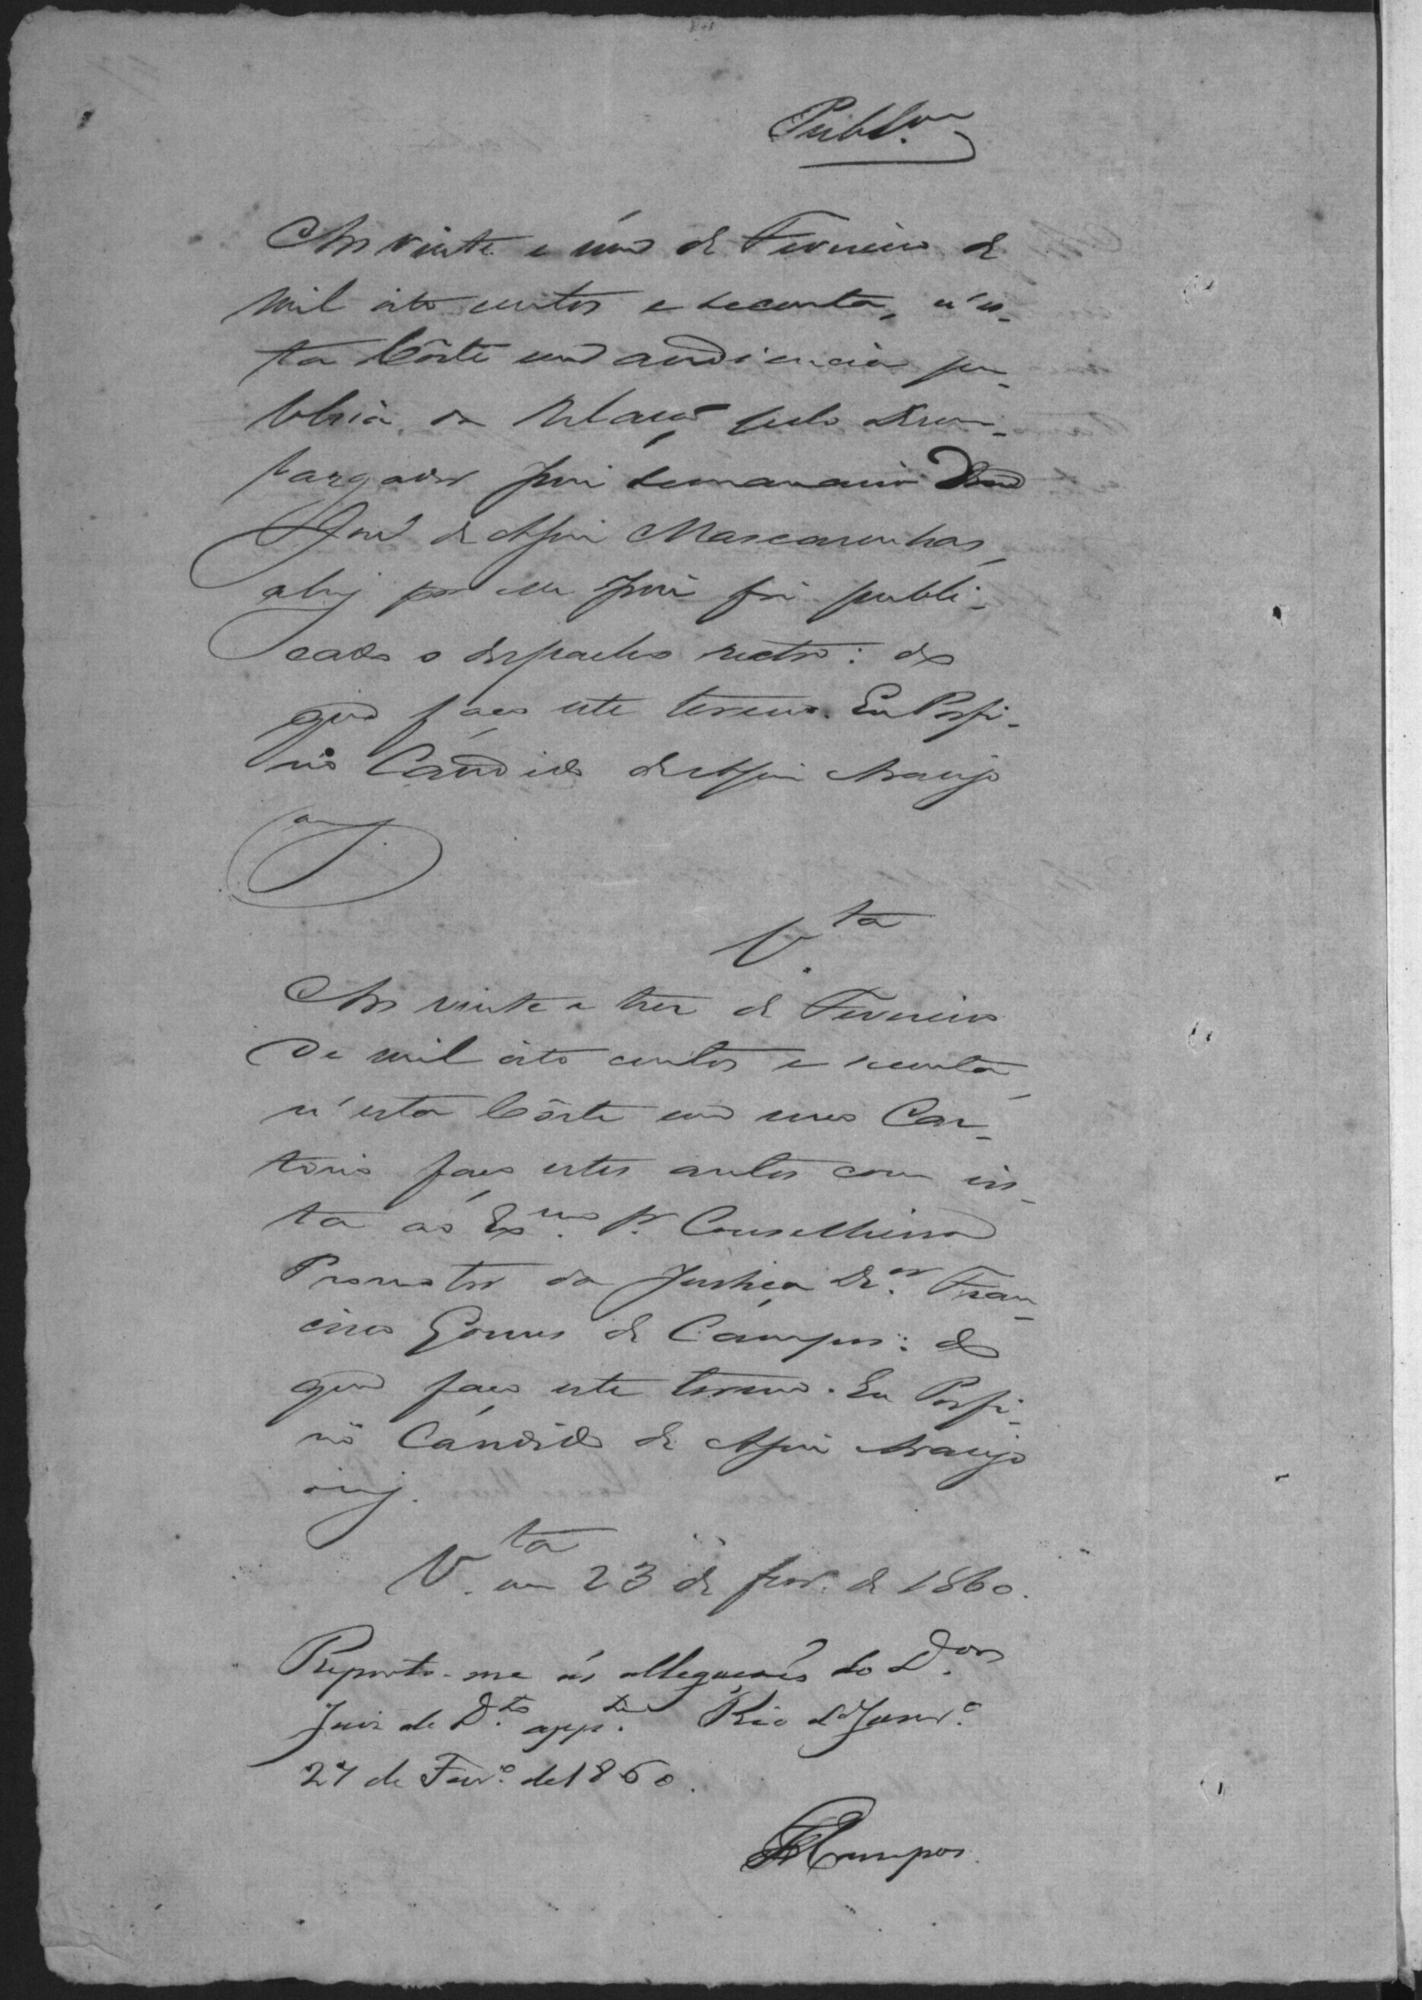 Publ.am
Aos vinte e um de Fevereiro de
mil oito centos e secenta, n'es-
ta Côrte em audiencia pu-
blica da Relação pelo Desem-
bargador Juiz semanario
José de Assis Mascarenhas,
ahi por elle Juiz foi publi-
cado o despacho rectro: do
que faço este termo. Eu Porfi-
rio Cándido de Assis Araujo
V.ta
Aos vinte e tres de Fevereiro
de mil oito centos e secenta,
n'esta Côrte em meo Car-
torio faço estes autos com vis-
ta ao Ex.mo Sr. Conselheiro
Promotor da Justiça Dr. Fran-
cisco Gomes de Campos: do
que faço este termo. Eu Porfi-
rio Cándido de Assis Araujo
V.ta em 23 de fevr. de 1860.
Reporto-me ás allegações do D.or
Juiz de D.to app.te Rio de Janr.o
27 de Fevr.o de 1860.
Campos.